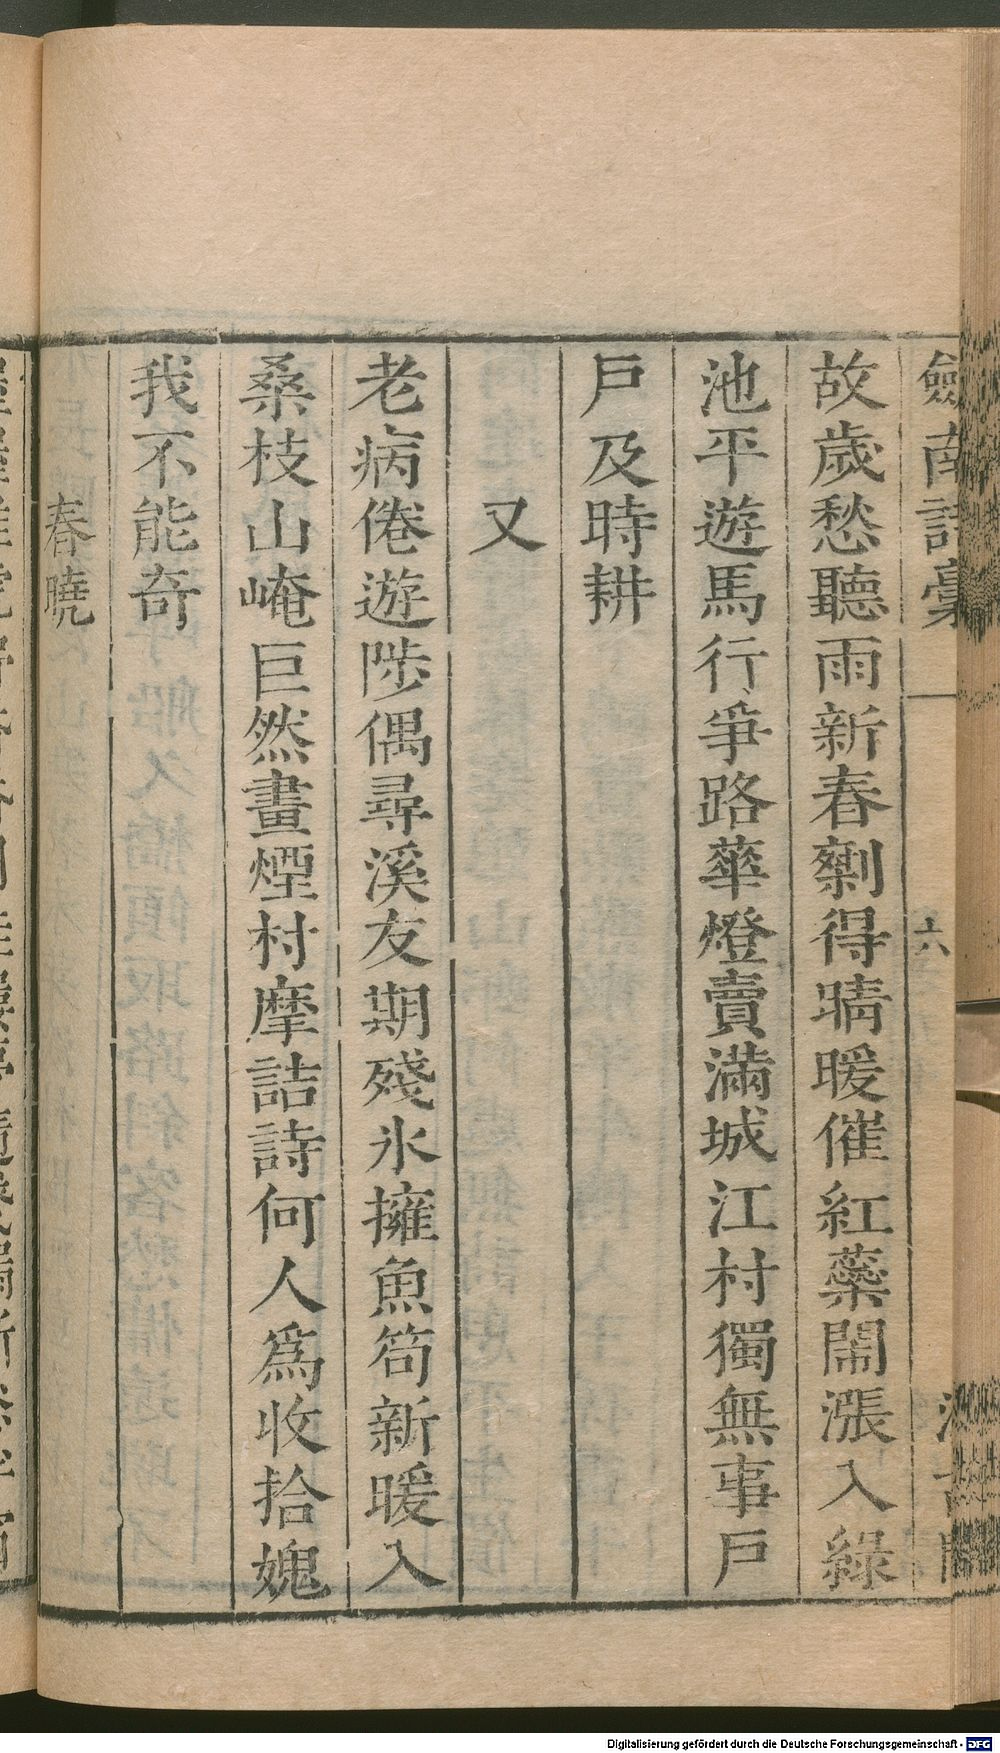 劍南詩稾
六
故歲愁聽雨新春剩得晴暖催紅藥鬧漲入綠
池平遊馬行爭路華燈賣滿城江村獨無事戶
戶及時耕
又
老病倦遊陟偶尋溪友期殘氷擁魚笱新暖入
桑枝山崦巨然畫煙村摩詰詩何人爲收拾媿
我不能奇
春曉
Digitalisierung gefördert durch die Deutsche Forschungsgemeinschaft - DFG